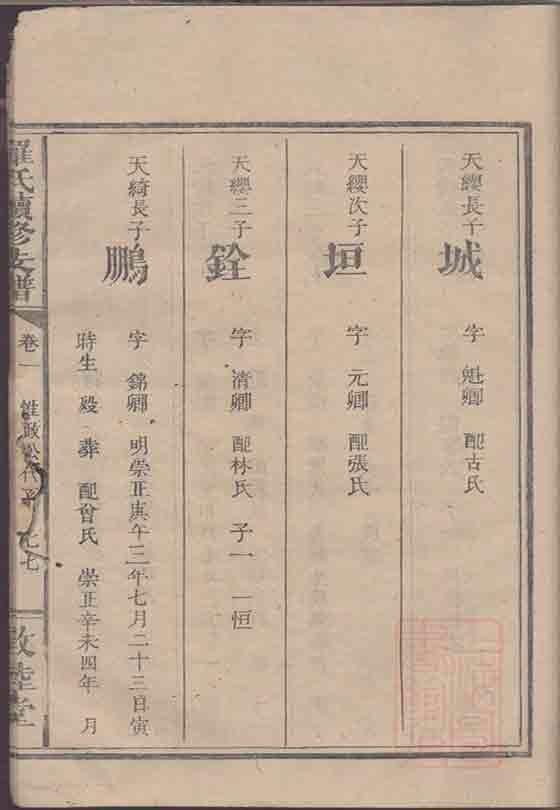 天纓長子
城
字 魁卿 配古氏
天纓次子
垣
字 元卿 配張氏
天纓三子
銓
字 清卿 配林氏 子一 一恒
天綺長子
鵬
字 錦卿 明崇正庚午三年七月二十三日寅
時生 歿 葬 配曾氏 崇正辛未四年 月
羅氏續修支譜
卷一
惟政公代
七七
敦睦堂